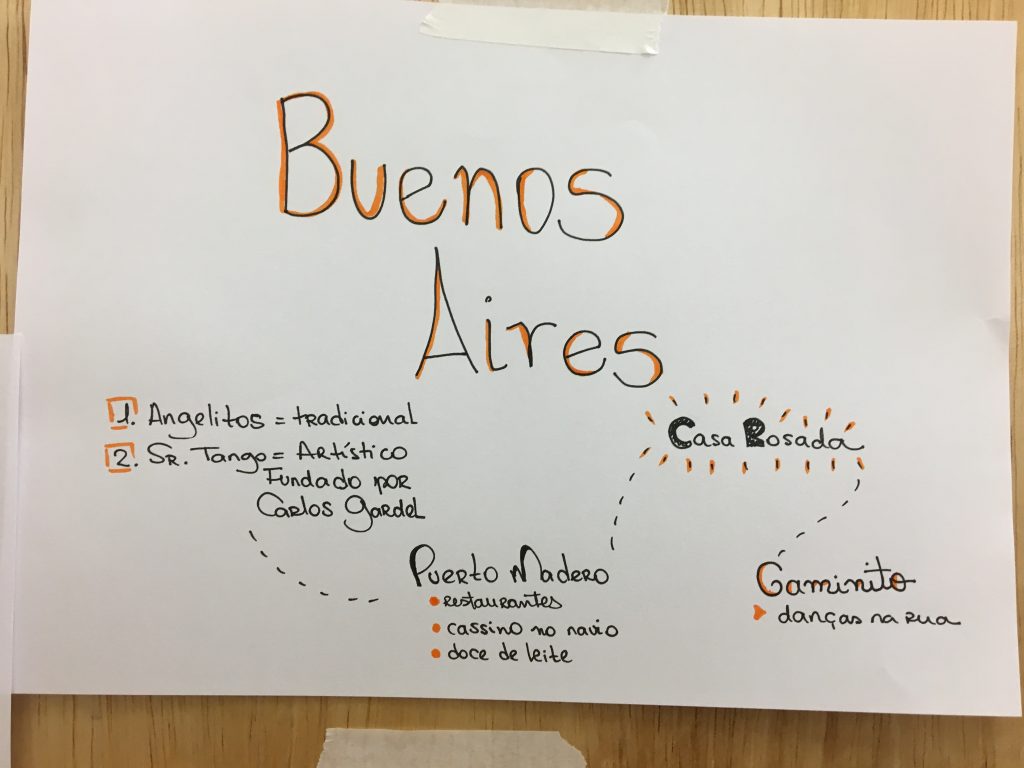 Buenos
Aires
1. Angelitos = tradicional
2. Sr. Tango = Artístico
Fundado por
Carlos Gardel
Puerto Madero
• restaurantes
• cassino no navio
• doce de leite
Casa Rosada
Caminito
danças na rua